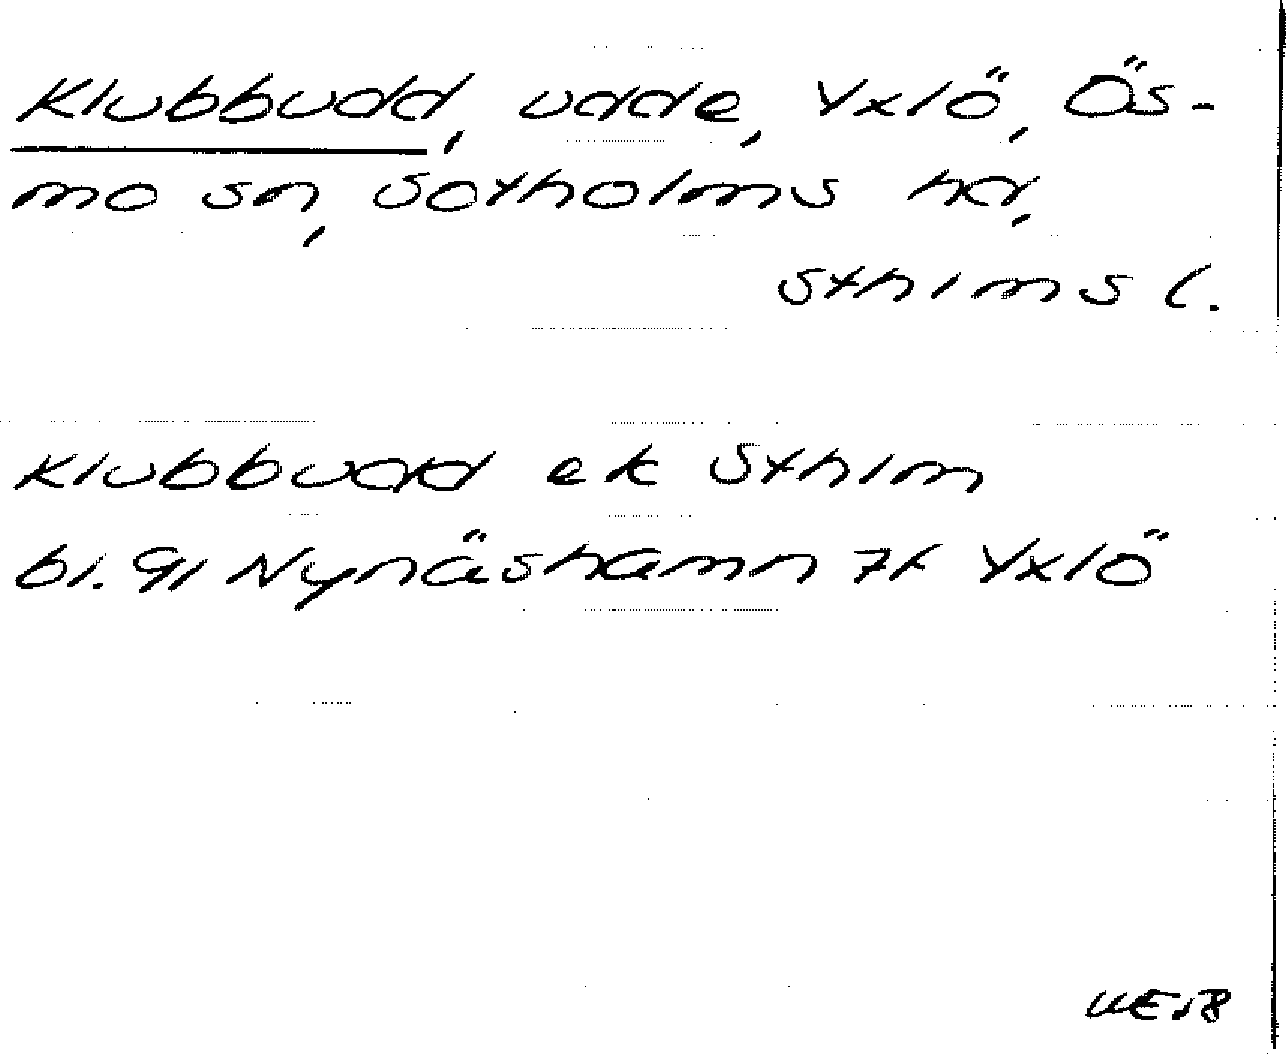 Klubbudd, udde, Yxlö, Ös-
mo sn, Sotholms hd,
Sthlms l.
Klubbudd ek Sthlm
bl. 91 Nynäshamn 7f Yxlö